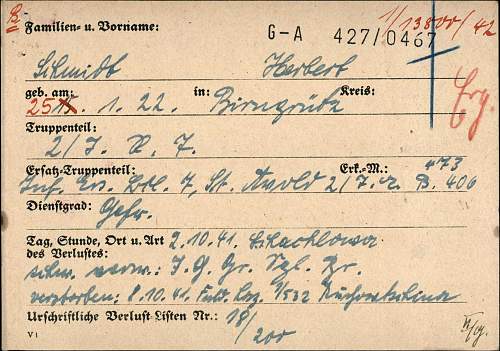 1/13800/42
Familien- u. Vorname:
G-A 427/0467
Schmidt Herbert
geb. am: in: Kreis:
25. 1. 22. Birngrütz
Truppenteil:
2/J. R. 7.
Ersatz-Truppenteil: Erk.-M.: 473
Inf. Ers. Btl. 7, St. Avold 2/J. R. B. 406
Dienstgrad: Gefr.
Tag, Stunde, Ort u. Art 2.10.41.
des Verlustes:
schw. verw.: J. G. Gr. Spl.
verstorben: 8.10.41. Feld Laz.
Urschriftliche Verlust-Listen Nr.: 18/200
V 1